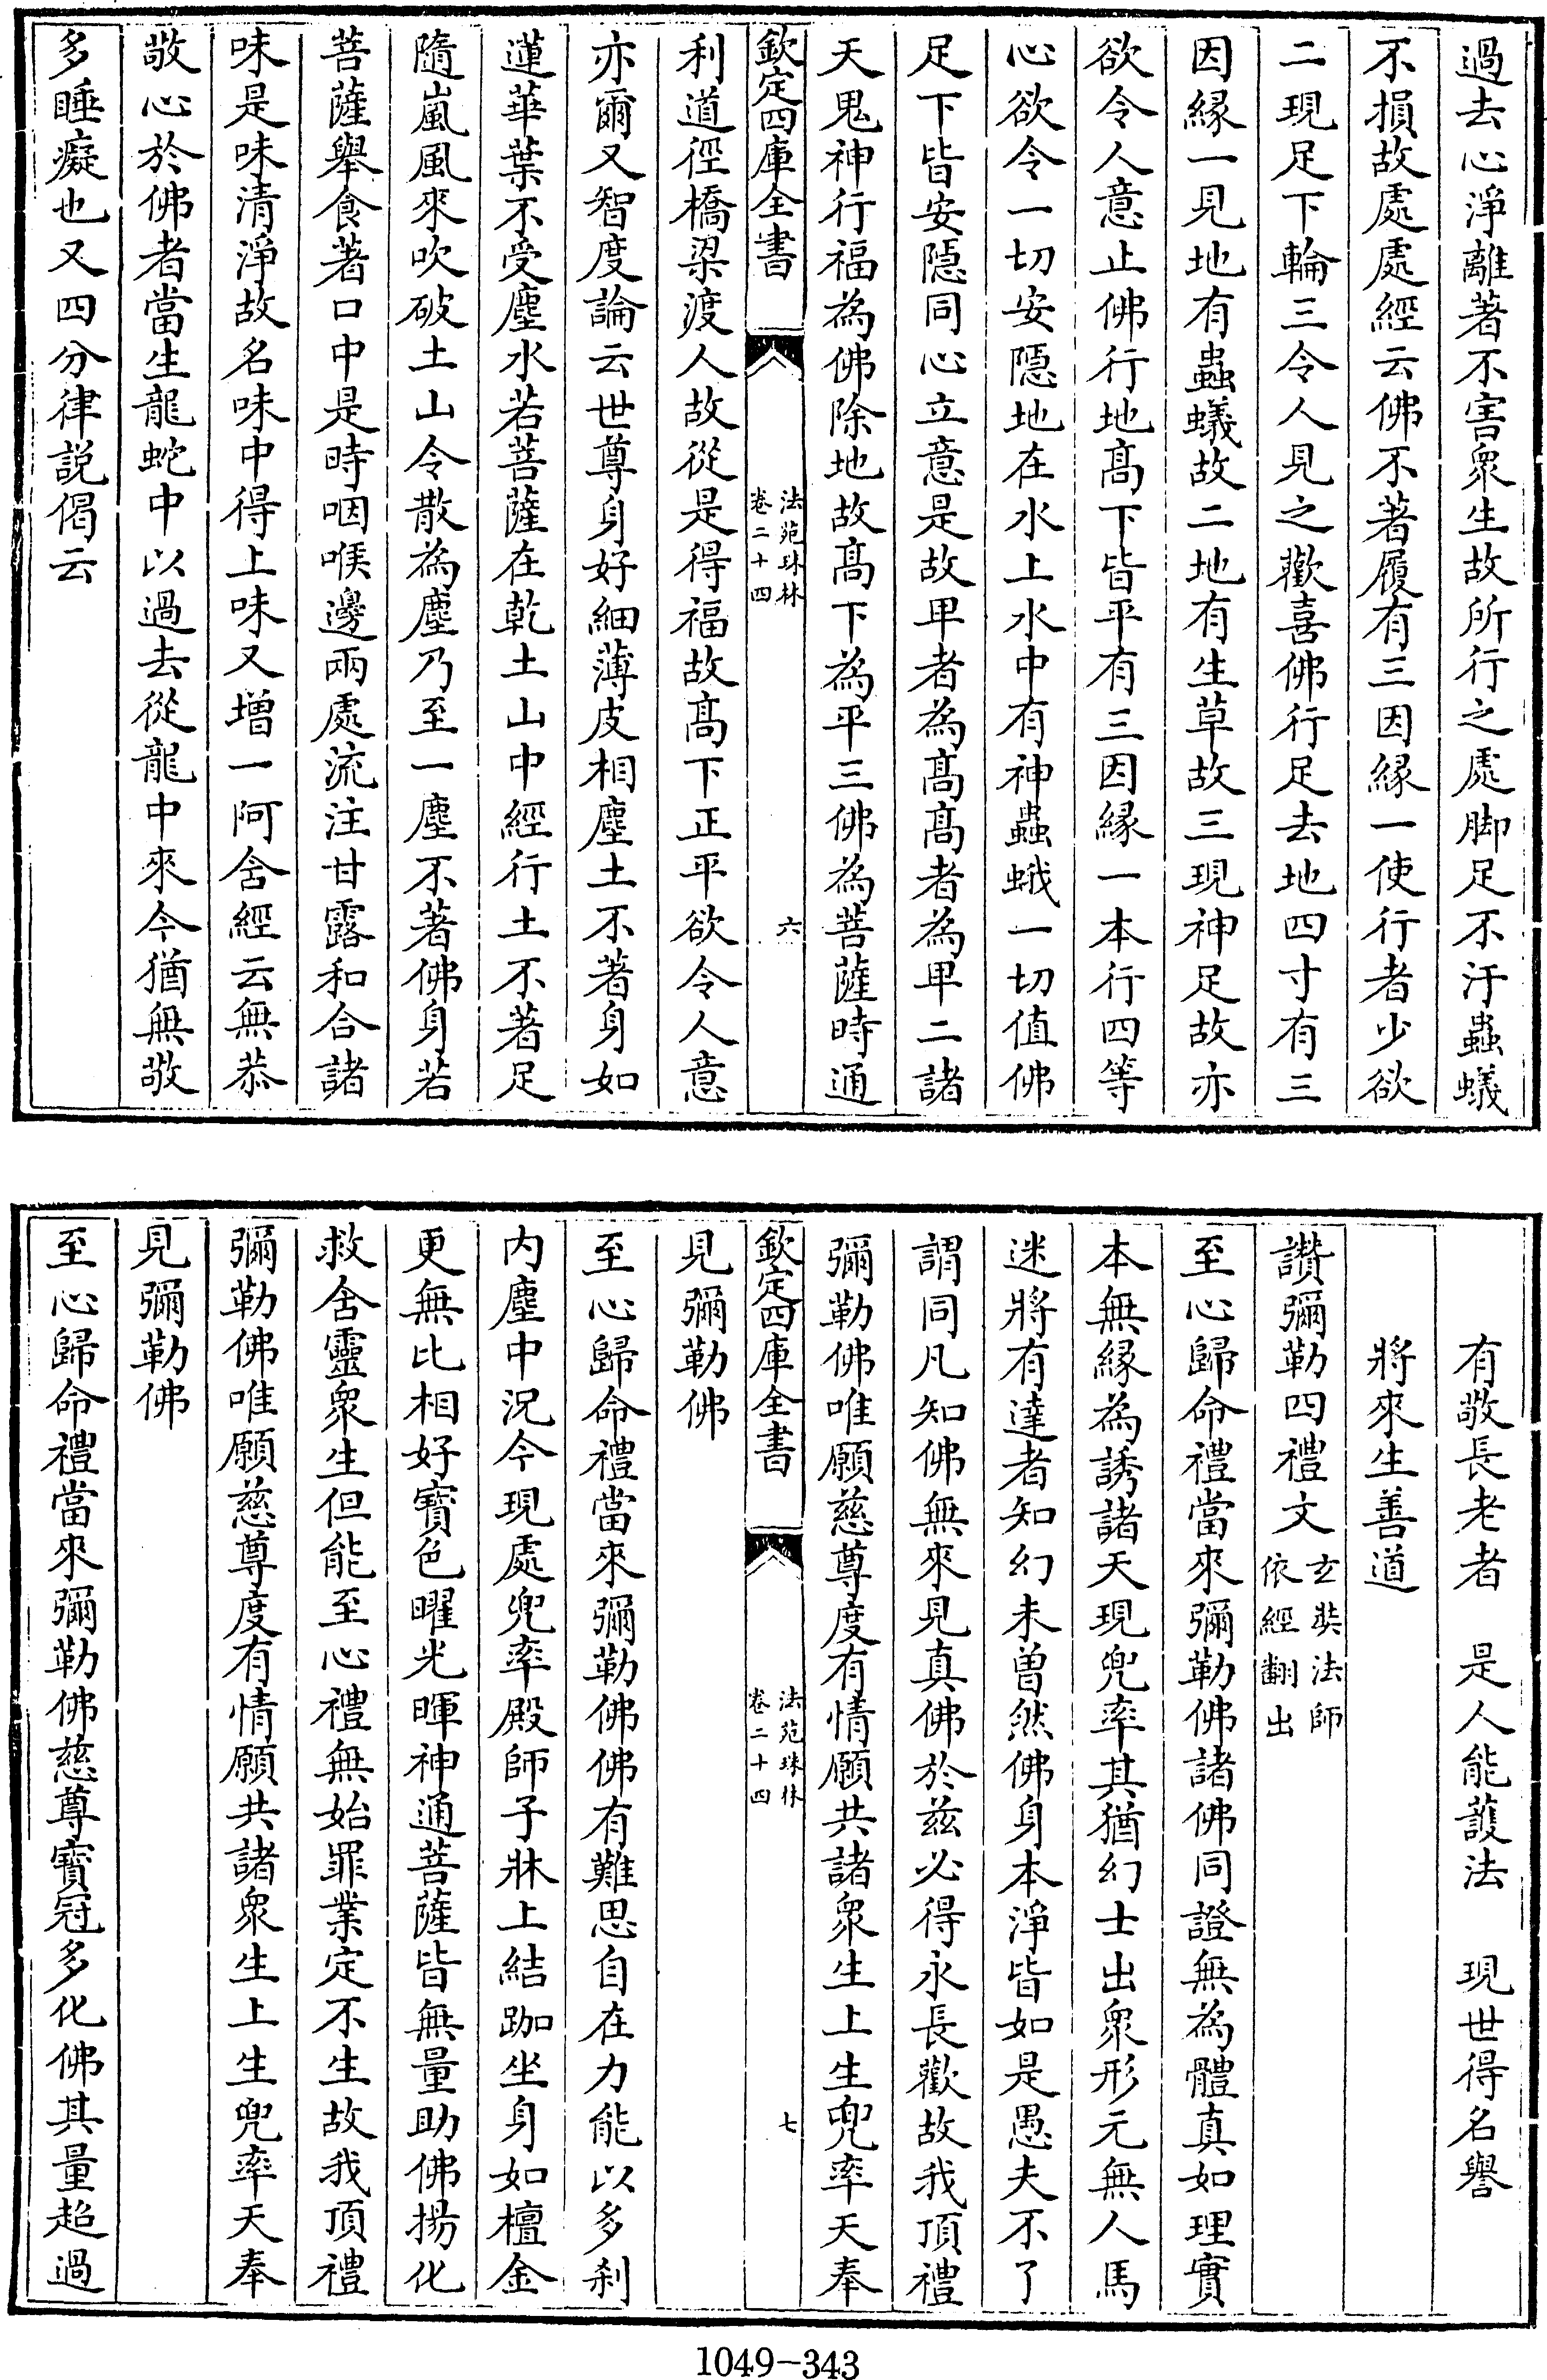 過去心淨離著不害衆生故所行之處脚足不汙蟲蟻
不損故處處經云佛不著履有三因緣一使行者少欲
二現足下輪三令人見之歡喜佛行足去地四寸有三
因緣一見地有蟲蟻故二地有生草故三現神足故亦
欲令人意止佛行地髙下皆平有三因緣一本行四等
心欲令一切安隱地在水上水中有神蟲蛾一切值佛
足下皆安隱同心立意是故甲者為髙髙者為甲二諸
天鬼神行福為佛除地故髙下為平三佛為菩薩時通
欽定四庫全書
法苑珠林
卷二十四
六
利道徑橋梁渡人故從是得福故髙下正平欲令人意
亦爾又智度論云世尊身好細薄皮相塵土不著身如
蓮華葉不受塵水若菩薩在乾土山中經行土不著足
隨嵐風來吹破土山令散為塵乃至一塵不著佛身若
菩薩舉食著口中是時咽喉邊兩處流注甘露和合諸
味是味清淨故名味中得上味又增一阿含經云無恭
敬心於佛者當生龍蛇中以過去從龍中來今猶無敬
多睡癡也又四分律說偈云
有敬長老者　是人能護法　現世得名譽
將來生善道
讚彌勒四禮文
玄奘法師
依經翻出
至心歸命禮當來彌勒佛諸佛同證無為體真如理實
本無緣為誘諸天現兜率其猶幻士出衆形元無人馬
迷將有達者知幻未曽然佛身本淨皆如是愚夫不了
謂同凡知佛無來見真佛於兹必得永長歡故我頂禮
彌勒佛唯願慈尊度有情願共諸衆生上生兜率天奉
欽定四庫全書
法苑珠林
卷二十四
七
見彌勒佛
至心歸命禮當來彌勒佛佛有難思自在力能以多刹
内塵中況今現處兜率殿師子牀上結跏坐身如檀金
更無比相好寶色曜光暉神通菩薩皆無量助佛揚化
救含靈衆生但能至心禮無始罪業定不生故我頂禮
彌勒佛唯願慈尊度有情願共諸衆生上生兜率天奉
見彌勒佛
至心歸命禮當來彌勒佛慈尊寶冠多化佛其量超過
1049-343